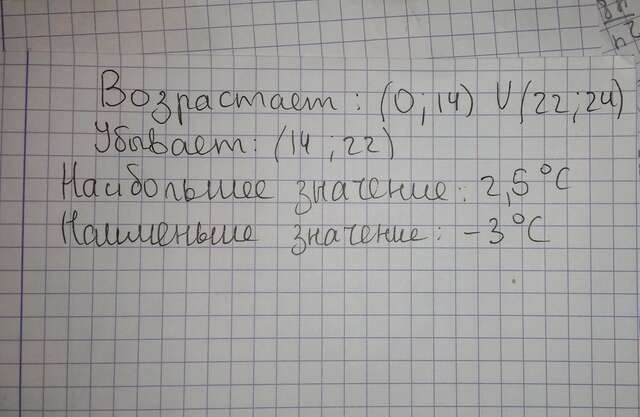 Возрастает: (0; 14) U (22; 24)
Убывает: (14 ; 22)
Наибольшее значение: 2,5°C
Наименьше значение: -3°C